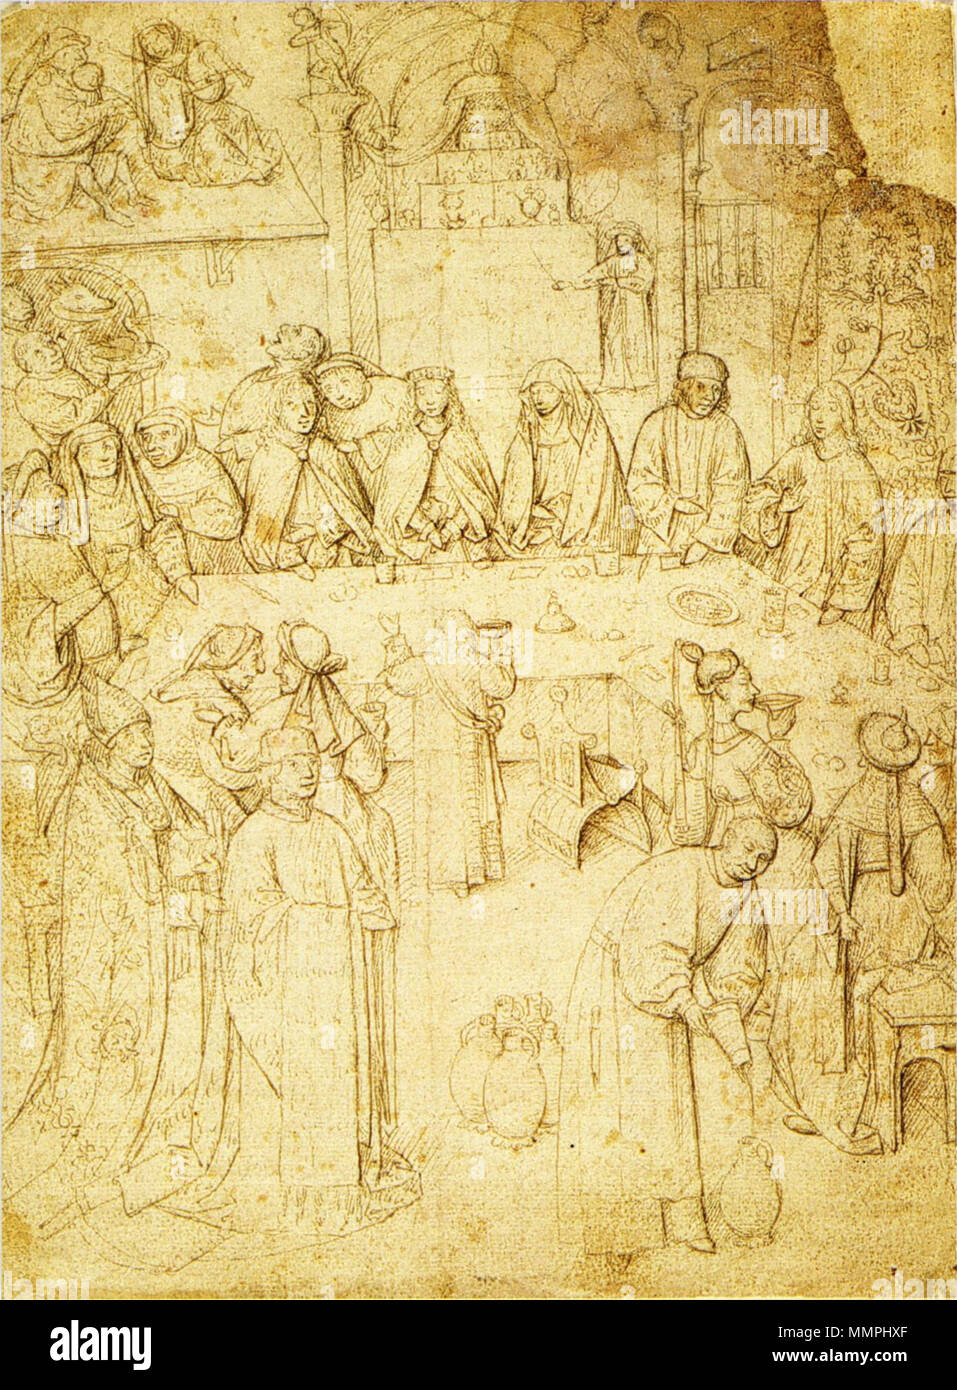 alamy
alamy
alamy
alamy
alamy
a
alamy
Image ID: MMPHXF
www.alamy.com